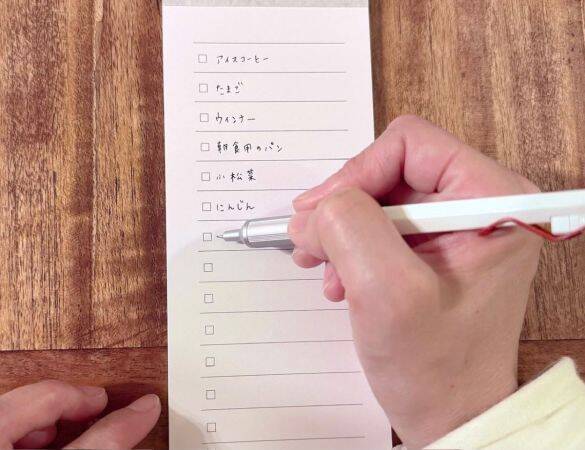 アイスコーヒー
たまご
ウインナー
朝食用のパン
小松菜
にんじん